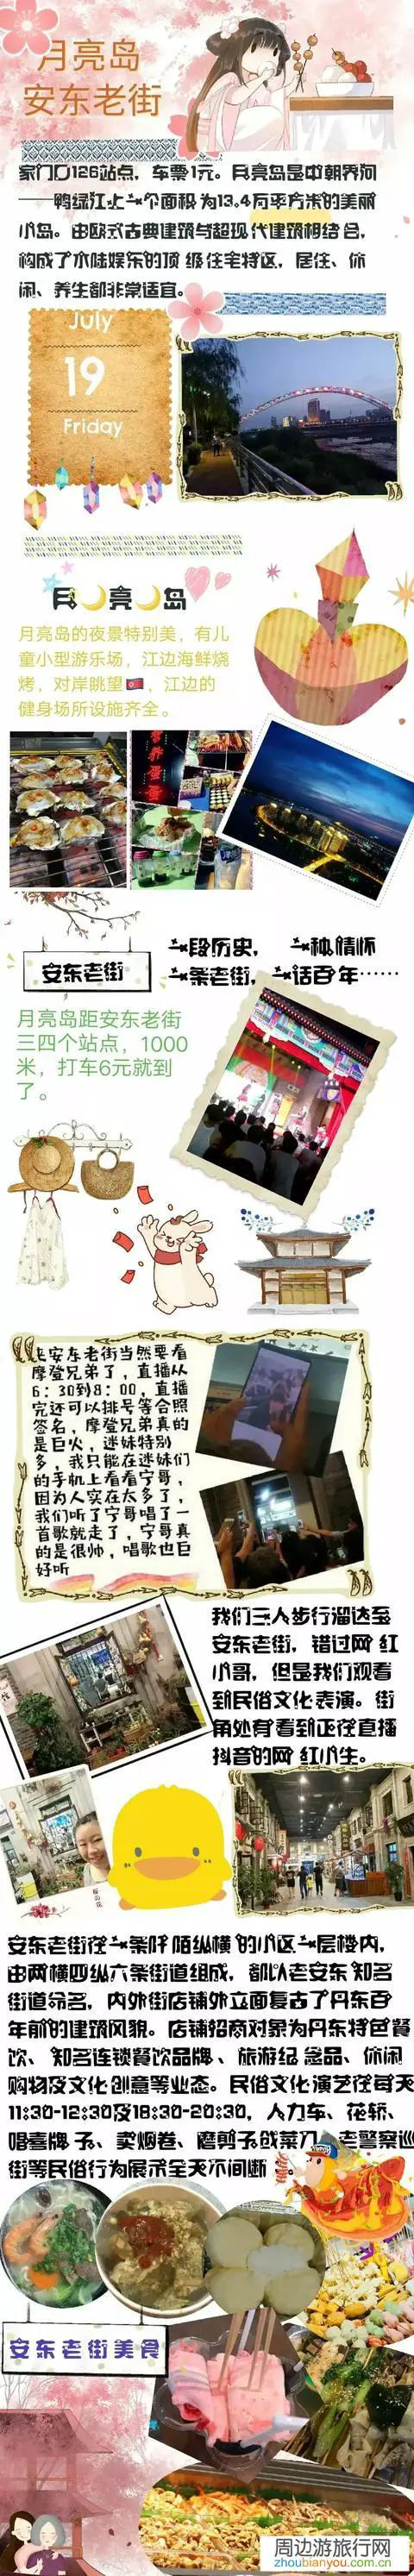 月亮岛
安东老街
家门口126站点，车票1元。月亮岛是中朝界河
——鸭绿江上一个面积为13.4万平方米的美丽
小岛。由欧式古典建筑与超现代建筑相结合，
构成了水陆娱乐的顶级住宅特区，居住、休
闲、养生都非常适宜。
July
19
Friday
月🌙亮🌙岛
月亮岛的夜景特别美，有儿
童小型游乐场，江边海鲜烧
烤，对岸眺望🇰🇵，江边的
健身场所设施齐全。
安东老街
一段历史，一种情怀
一条老街，一话百年……
月亮岛距安东老街
三四个站点，1000
米，打车6元就到
了。
来安东老街当然要看
摩登兄弟了，直播从
6：30到8：00，直播
完还可以排号等合照
签名，摩登兄弟真的
是巨火，迷妹特别
多，我只能在迷妹们
的手机上看看宁哥，
因为人实在太多了，
我们听了宁哥唱了一
首歌就走了，宁哥真
的是很帅，唱歌也巨
好听
我们三人步行溜达至
安东老街，错过网红
小哥，但是我们观看
到民俗文化表演。街
角处有看到正在直播
抖音的网红小生。
安东老街在一条阡陌纵横的小区一层楼内，
由两横四纵六条街道组成，都以老安东知名
街道命名，内外街店铺外立面复古了丹东百
年前的建筑风貌。店铺招商对象为丹东特色餐
饮、知名连锁餐饮品牌、旅游纪念品、休闲
购物及文化创意等业态。民俗文化演艺在每天
11:30-12:30及18:30-20:30，人力车、花轿、
唱喜牌子、卖烟卷、磨剪子戗菜刀、老警察巡
街等民俗行为展示全天不间断。
安东老街美食
周边游旅行网
zhoubianyou.com.cn